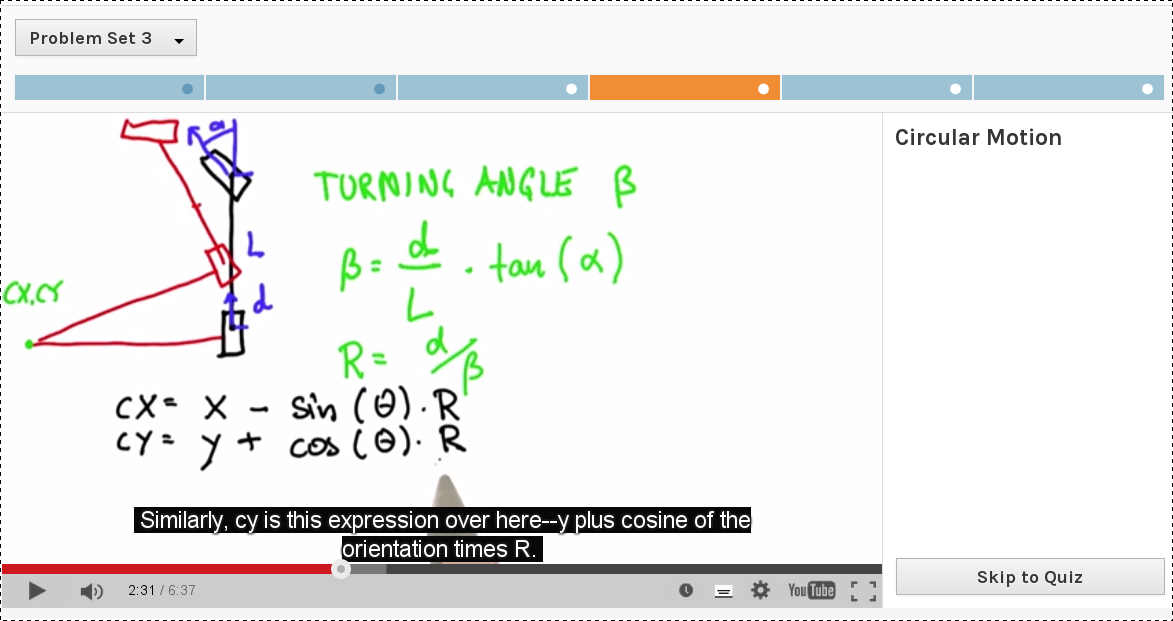 Problem Set 3
Circular Motion
α
TURNING ANGLE β
L
β = d/L · tan(α)
CX,CY
d
R = d/β
CX = X - sin(θ)·R
CY = y + cos(θ)·R
Similarly, cy is this expression over here--y plus cosine of the
orientation times R.
Skip to Quiz
2:31 / 6:37
YouTube